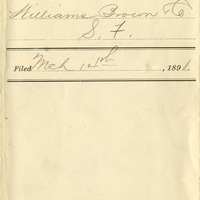 Williams Brown & Co
S. F.
Filed Mch 14th, 1898.